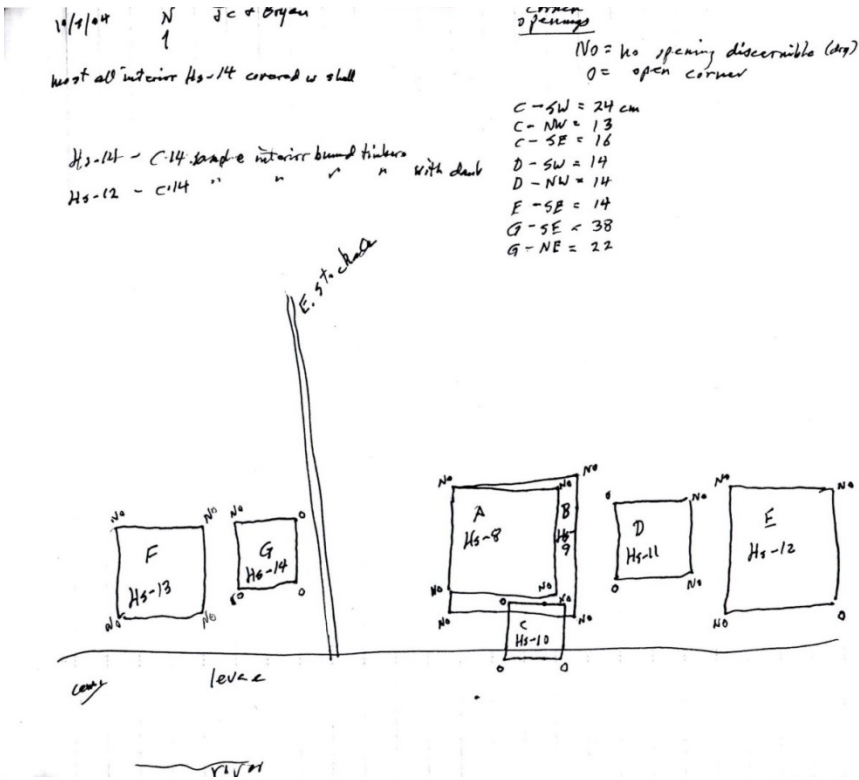 10/8/04 N JC + Bryan
most all interior Hs-14 covered w shell
Hs-14 - C-14 sample interior burned timbers
Hs-12 - C-14 " " " " with daub
corner
openings
NO = no opening discernible (drg)
O = open corner
C - SW = 24 cm
C - NW = 13
C - SE = 16
D - SW = 14
D - NW = 14
E - SE = 14
G - SE = 38
G - NE = 22
E. stockade
No No No O
F
Hs-13
No No
G
Hs-14
No O
No No No
A
Hs-8
B
Hs-9
No No
No No
O No
C
Hs-10
O O
O No
D
Hs-11
O No
No No
E
Hs-12
NO O
levee
river